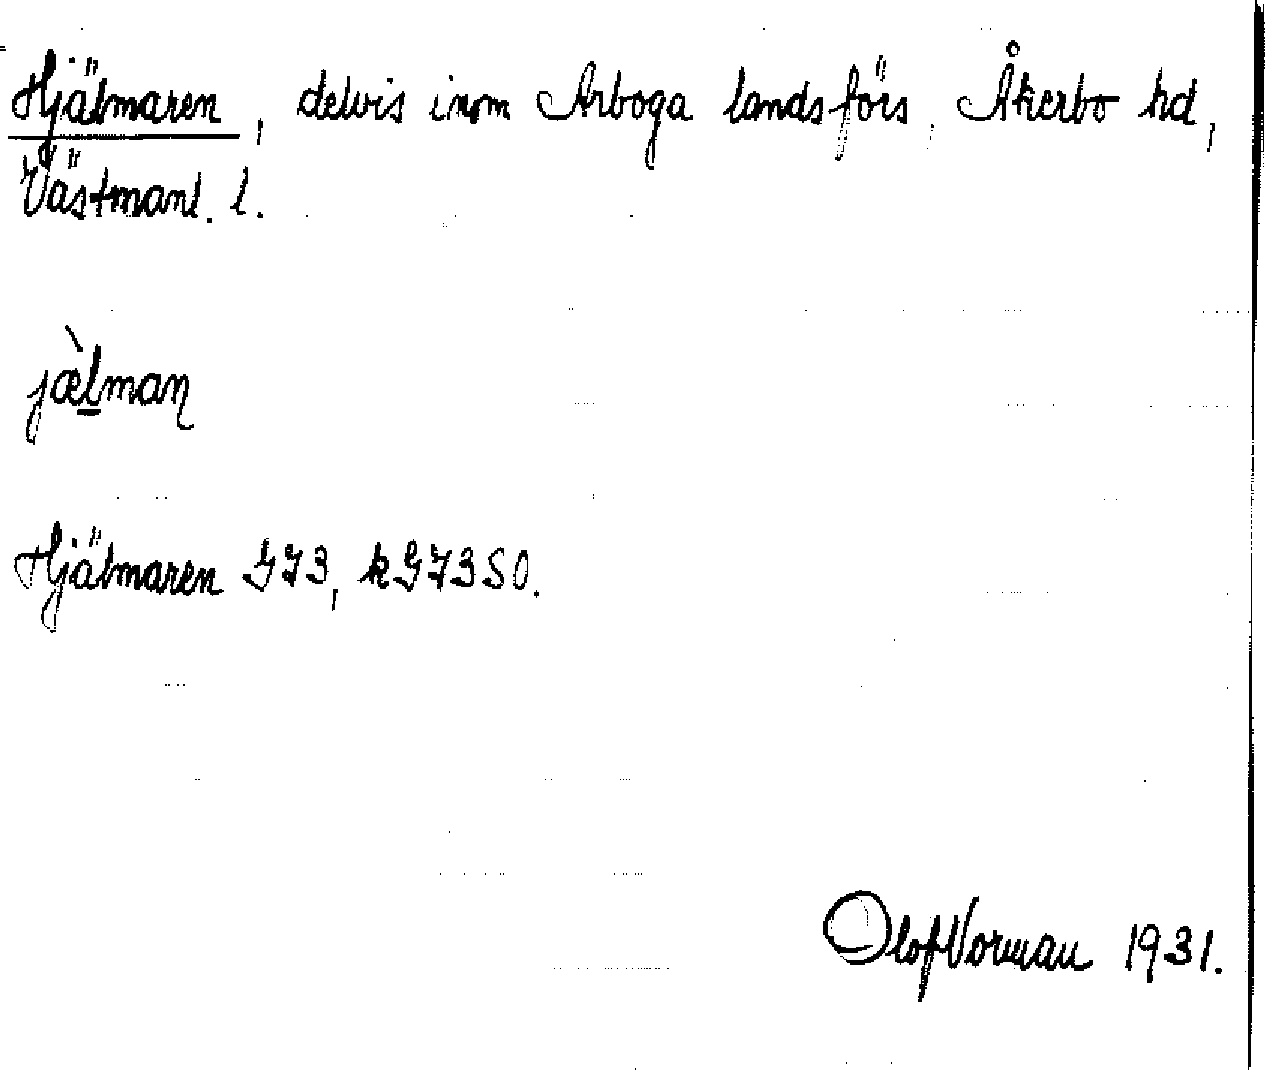 Hjälmaren, delvis inom Arboga landsförs, Åkerbo hd,
Västmanl. l.
jæ̀l̲maɳ
Hjälmaren GJ3, kGJ3SO.
Olof Vorman 1931.